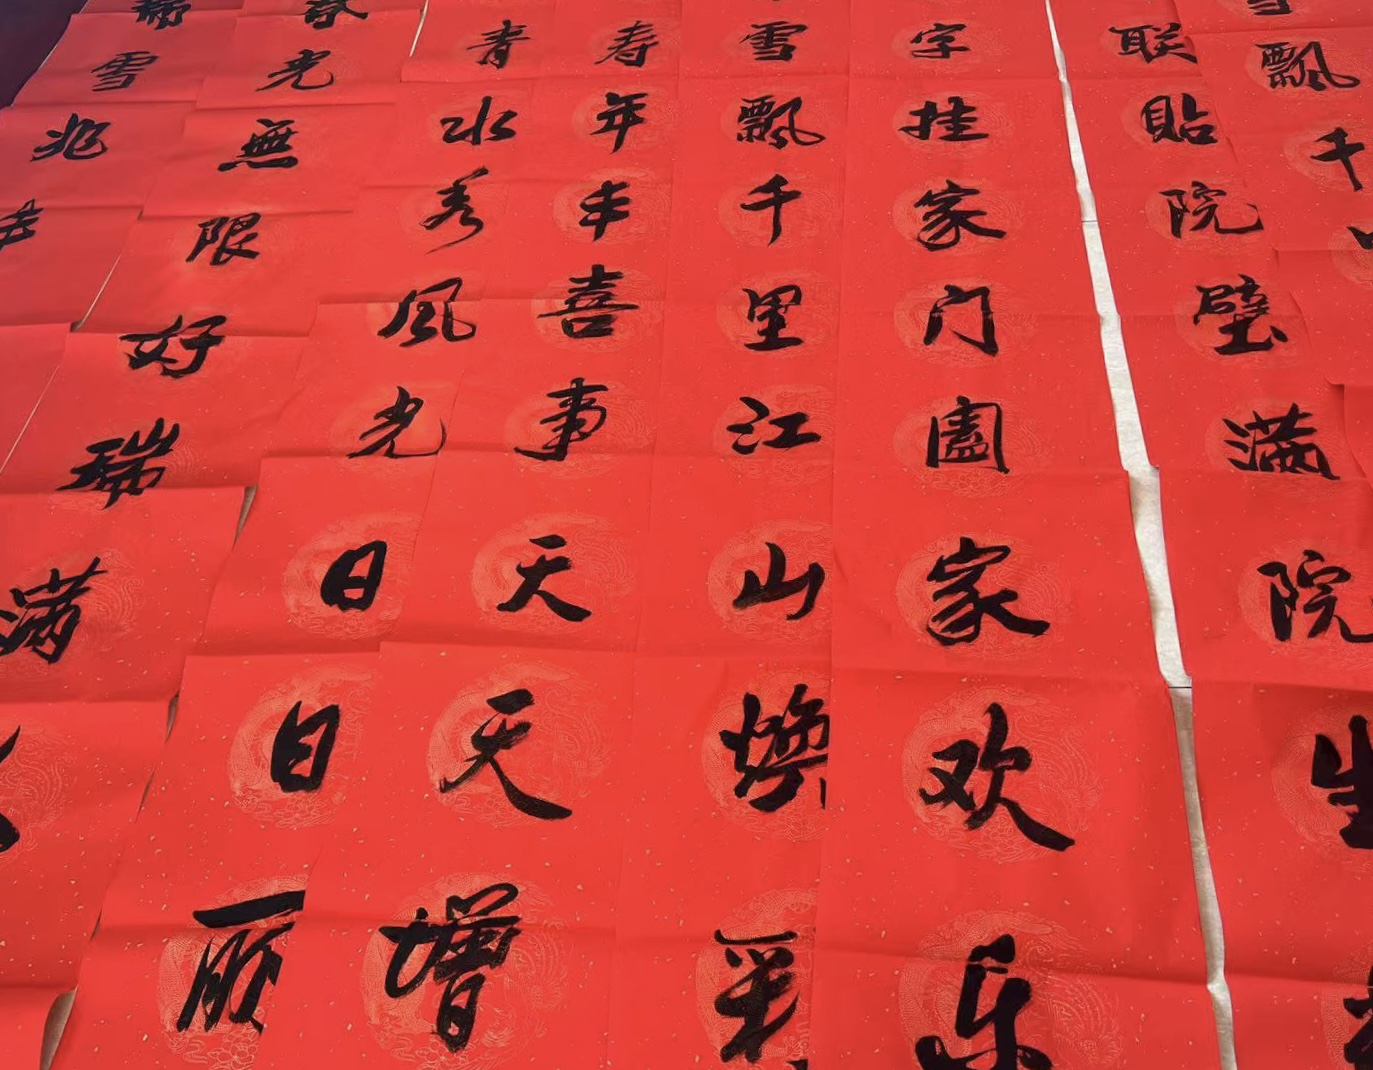 飘千
联貼院壁满院生
字挂家门阖家欢乐
雪飘千里江山焕彩
寿年丰喜事天天增
青水秀风光日日丽
春光無限好瑞满
瑞雪兆丰